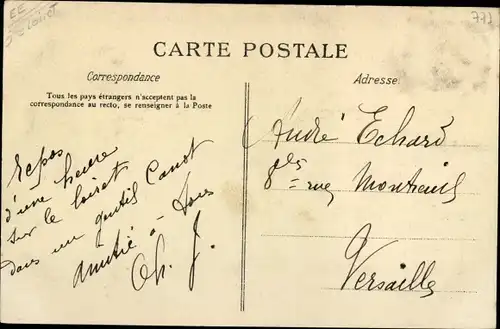 EE
Loiret
771
CARTE POSTALE
Correspondance
Tous les pays étrangers n'acceptent pas la
correspondance au recto, se renseigner à la Poste
Repos
d'une heure
sur le loiret
dans un gentil Canot
Amitié à Tous
Ch. J.
Adresse
André Echard
8 bis rue Montreuil
Versailles